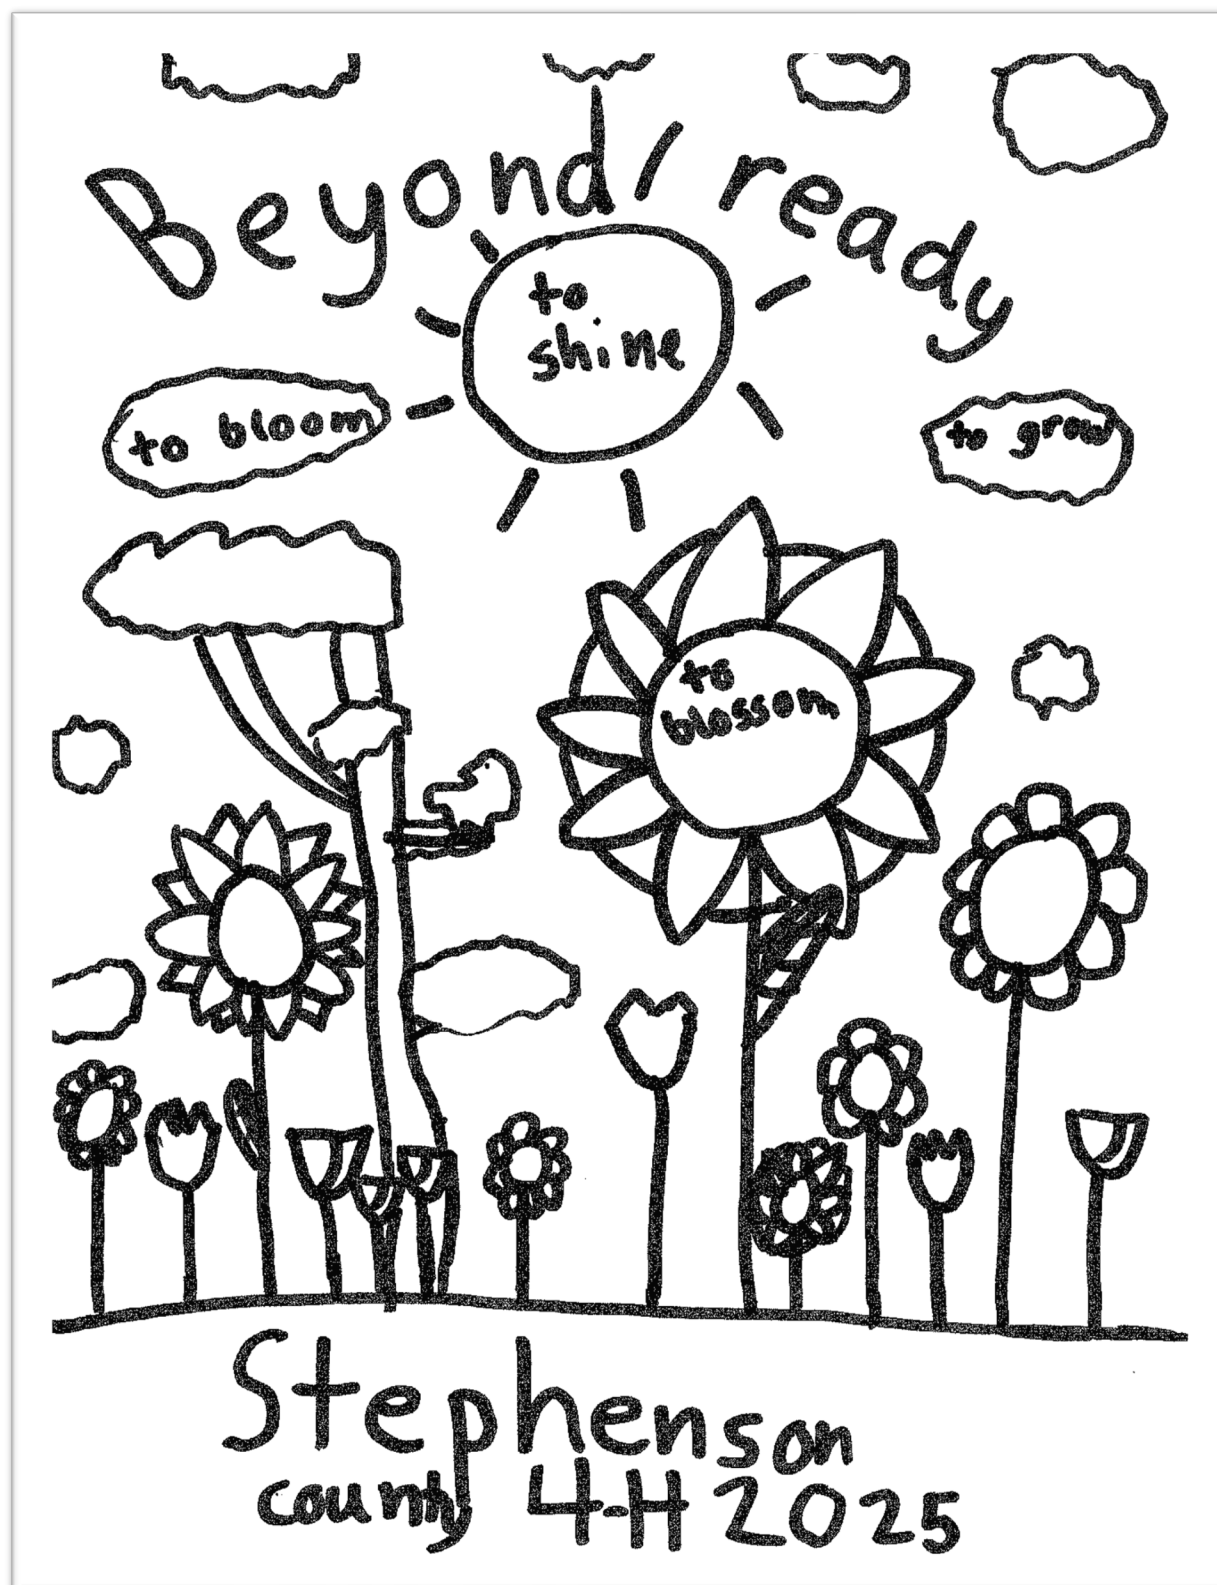 Beyond ready
to
shine
to bloom
to grow
to
blossom
Stephenson
county 4-H 2025